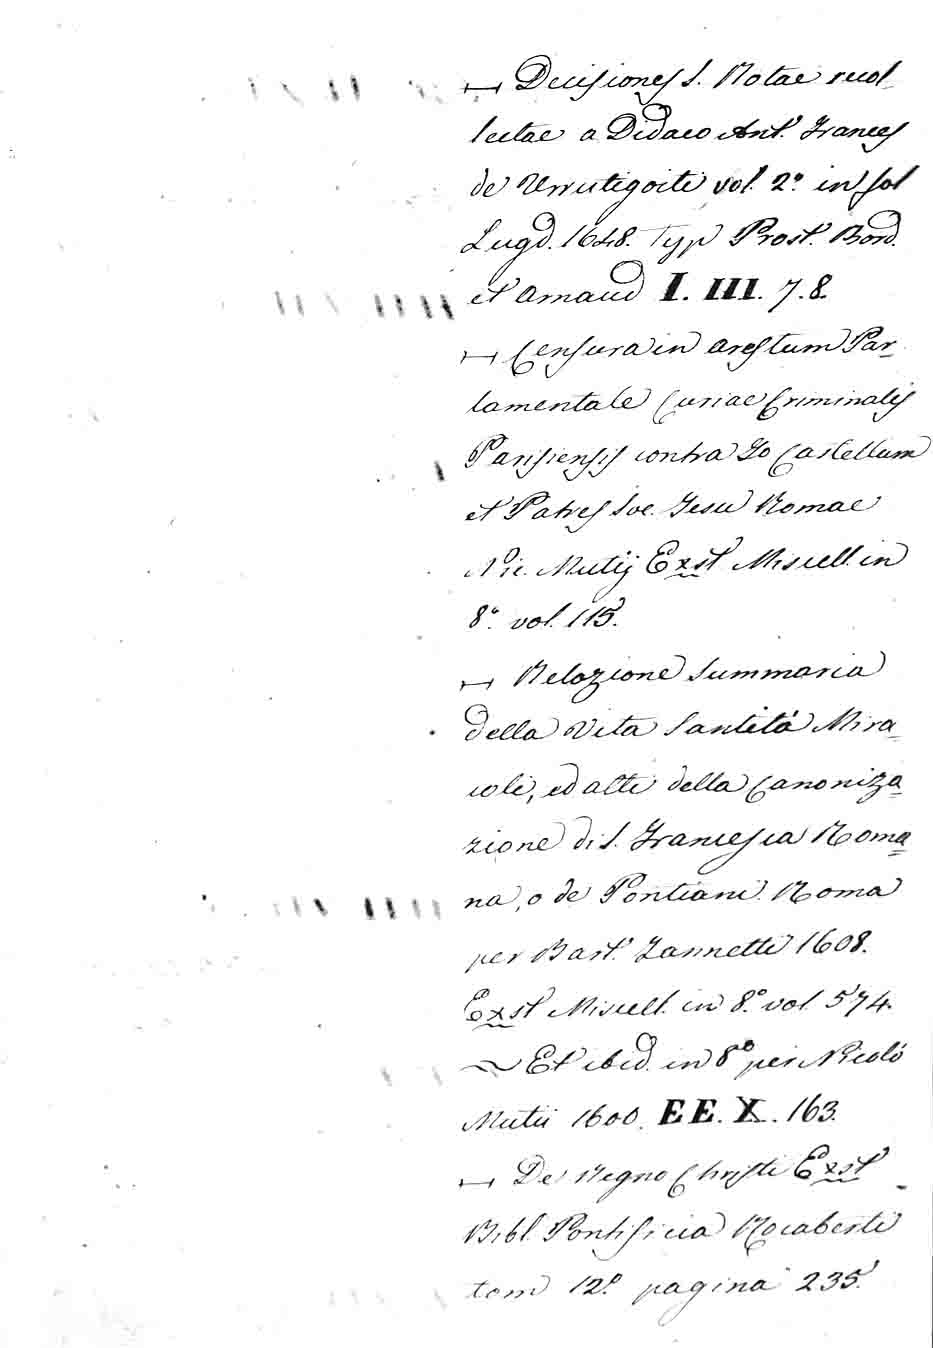 ⊢⊣ Decisiones S. Rotae recol-
lectae a Didaco Ant. Frances
de Urrutigoiti vol. 2.° in fol
Lugd. 1648. Typ Prost. Bord.
et Arnaud I. III. 7. 8.
⊢⊣ Censura in arestum Par-
lamentale Curiae Criminalis
Parisiensis contra Jo Castellum
et Patres Soc. Jesu Romae
Nic. Mutij Exst Miscell. in
8.° vol. 115.
⊢⊣ Relazione Summaria
della Vita Santità Mira=
coli, ed atti della Canoniza=
zione di S. Francesca Roma=
na, o de Pontiani. Roma
per Bart. Zannetti 1608.
Exst Miscell. in 8.° vol 574.
~ Et ibid. in 8° per Nicolò
Mutii 1600. E E. X. 163.
⊢⊣ De Regno Christi Exst
Bibl. Pontificia Rocaberti
tom 12.° pagina 235.